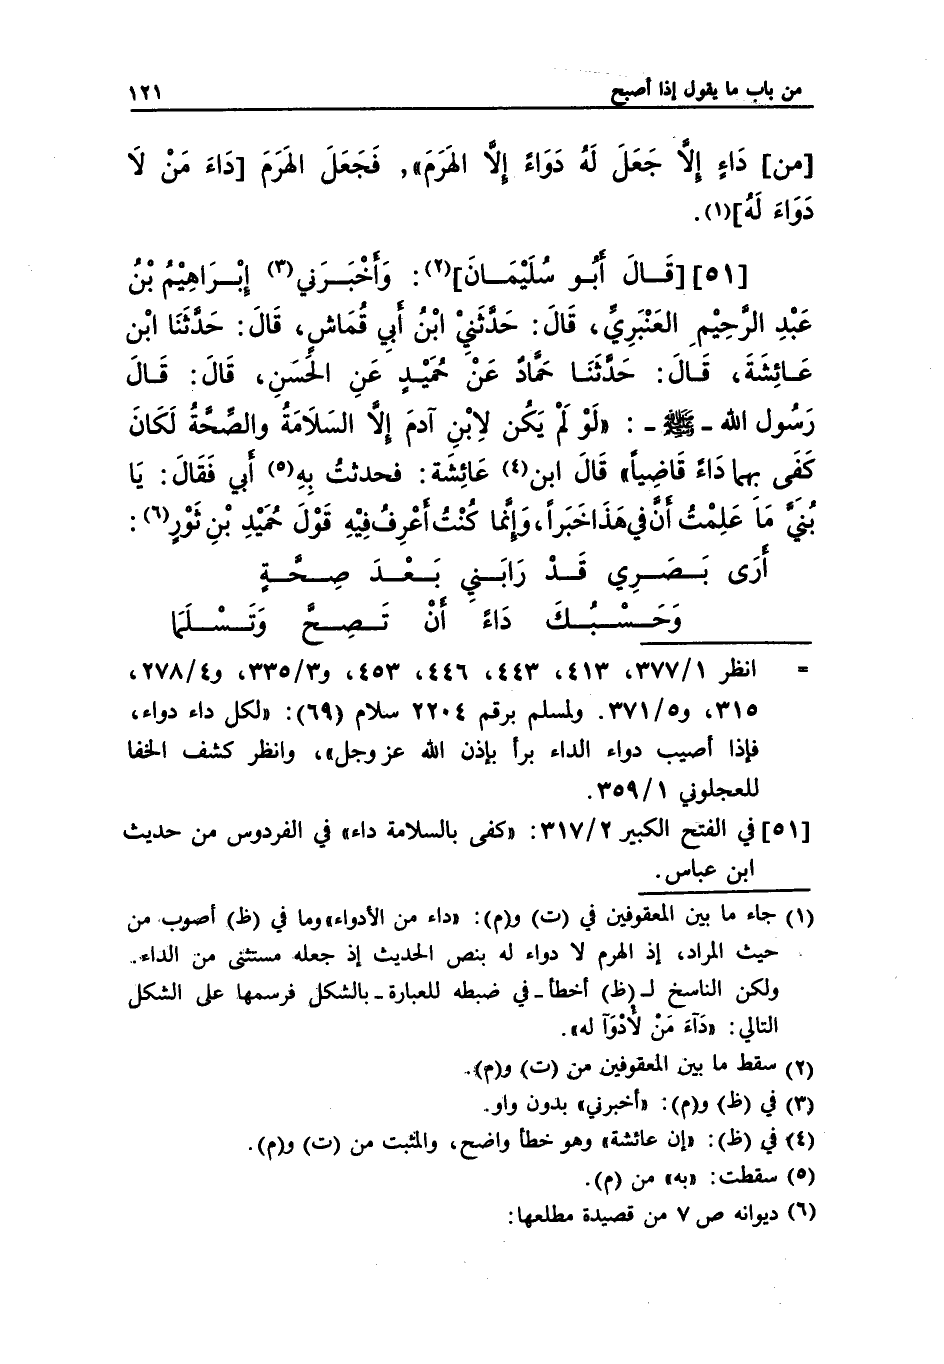 من باب ما يقول إذا أصبح ١٢١
[من] دَاءٍ إلَّا جَعَلَ لَهُ دَوَاءً إِلَّا الهَرَمَ», فَجَعَلَ الهَرَمَ [دَاءَ مَنْ لَا
دَوَاءَ لَهُ](١).
[٥١] [قَالَ أَبُو سُلَيْمَانَ](٢): وَأَخْبَرَني(٣) إِبْرَاهِيْمُ بْنُ
عَبْدِ الرَّحِيْمِ العَنْبَرِيُّ، قَالَ: حَدَّثَنِيْ ابْنُ أَبي قُمَاشٍ، قَالَ: حَدَّثَنَا ابْن
عَائِشَةَ، قَالَ: حَدَّثَنَا حَمَّادٌ عَنْ حُمَيْدٍ عَنِ الحَسَنِ، قَالَ: قَالَ
رَسُول الله - ﷺ - : «لَوْ لَمْ يَكُن لِابْنِ آدمَ إِلَّا السَلَامَةُ والصِّحَّةُ لَكَانَ
كَفَى بهما دَاءً قَاضِياً» قَالَ ابن(٤) عَائِشَة: فحدثتُ بِهِ(٥) أَبي فَقَالَ: يَا
بُنَيَّ مَا عَلِمْتُ أَنَّ في هَذَا خَبَراً، وَإِنَّما كُنْتُ أَعْرِفُ فِيْهِ قَوْلَ حُمَيْدِ بْنِ ثَوْرٍ(٦):
أَرَى بَصَرِي قَدْ رَابَنِي بَعْدَ صِحَّةٍ
وَحَسْبُكَ دَاءً أَنْ تَصِحَّ وَتَسْلَمَا
= انظر ٣٧٧/١، ٤١٣، ٤٤٣، ٤٤٦، ٤٥٣، و٣٣٥/٣، و٢٧٨/٤،
٣١٥، و٣٧١/٥. ولمسلم برقم ٢٢٠٤ سلام (٦٩): «لكل داء دواء،
فإذا أصيب دواء الداء برأ بإذن الله عز وجل»، وانظر كشف الخفا
للعجلوني ٣٥٩/١.
[٥١] في الفتح الكبير ٣١٧/٢: «كفى بالسلامة داء» في الفردوس من حديث
ابن عباس.
(١) جاء ما بين المعقوفين في (ت) و(م): «داء من الأدواء» وما في (ظ) أصوب من
حيث المراد، إذ الهرم لا دواء له بنص الحديث إذ جعله مستثنى من الداء.
ولكن الناسخ لـ (ظ) أخطأ - في ضبطه للعبارة - بالشكل فرسمها على الشكل
التالي: «دَآءَ مَنْ لَأَدْوَآ له».
(٢) سقط ما بين المعقوفين من (ت) و(م).
(٣) في (ظ) و(م): «أخبرني» بدون واو.
(٤) في (ظ): «إن عائشة» وهو خطأ واضح، والمثبت من (ت) و(م).
(٥) سقطت: «به» من (م).
(٦) ديوانه ص ٧ من قصيدة مطلعها: